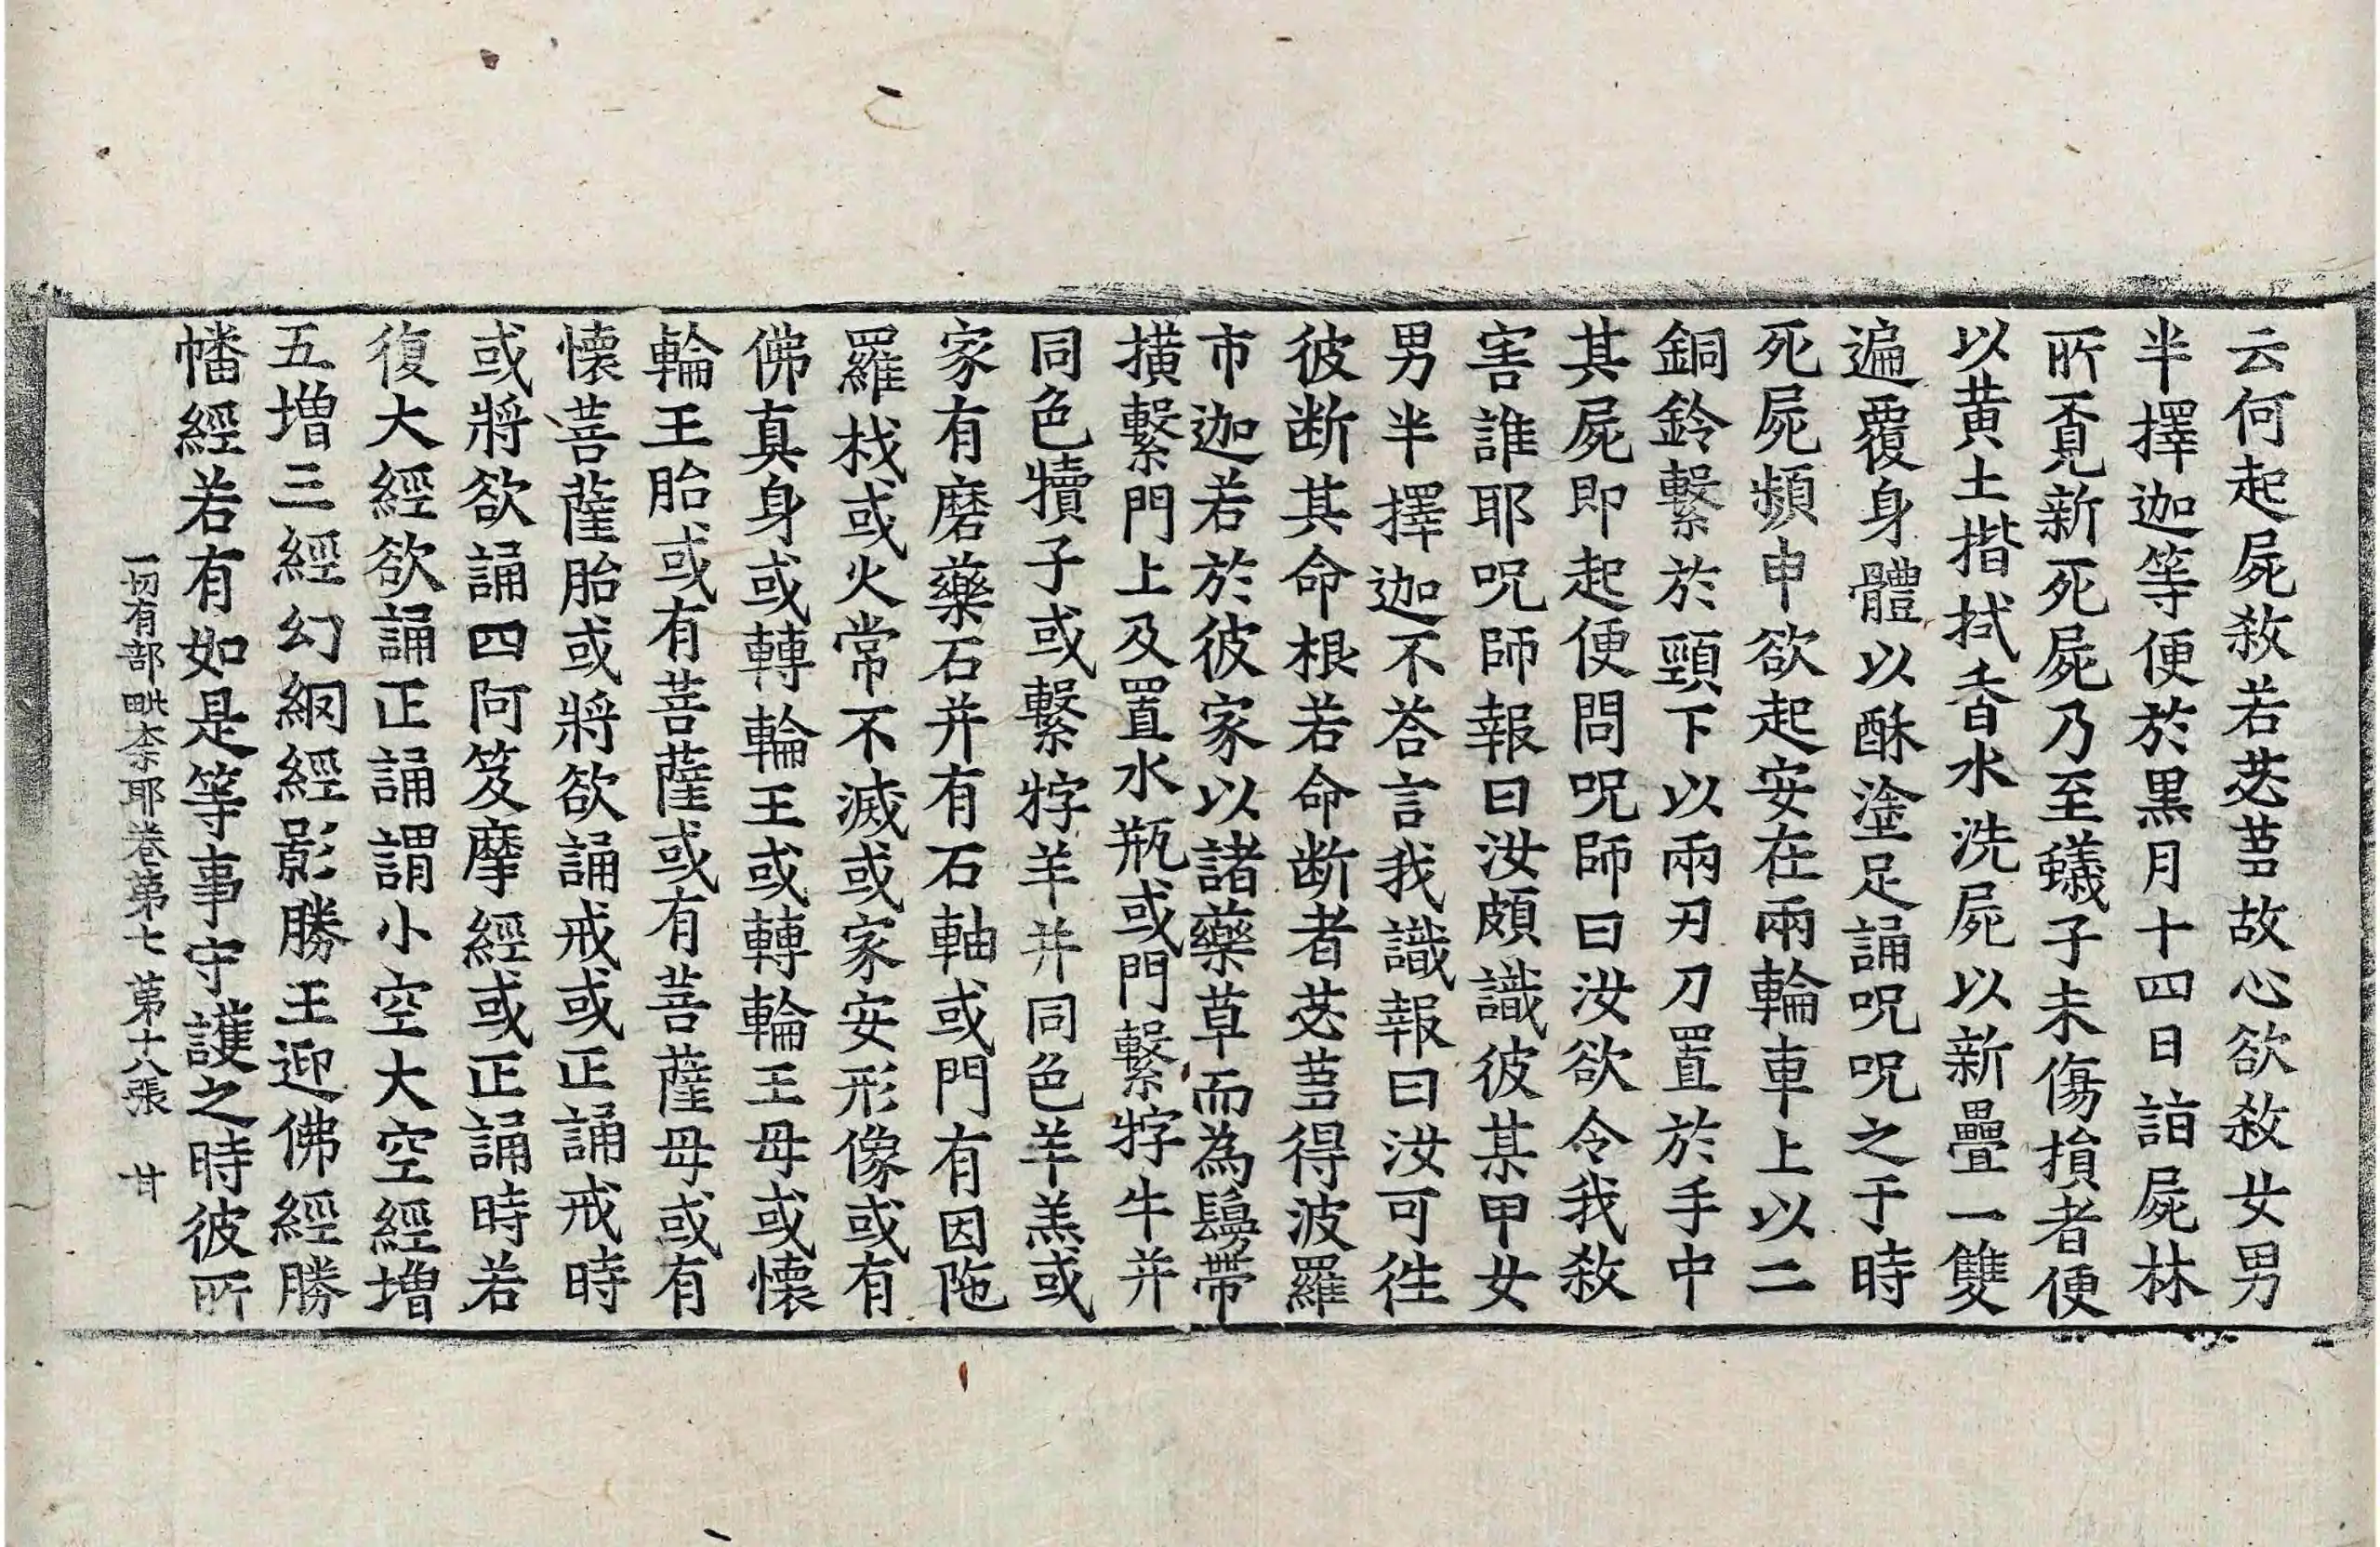 云何起屍殺若苾芻故心欲殺女男
半擇迦等便於黒月十四日詣屍林
所覔新死屍乃至蟻子未傷損者便
以黄土揩拭香水洗屍以新疊一雙
遍覆身體以酥塗足誦呪呪之于時
死屍頻申欲起安在兩輪車上以二
銅鈴繫於頸下以兩刃刀置於手中
其屍即起便問呪師曰汝欲令我殺
害誰耶呪師報曰汝頗識彼某甲女
男半擇迦不荅言我識報曰汝可往
彼断其命根若命断者苾芻得波羅
市迦若於彼家以諸藥草而為鬘帶
撗繫門上及置水瓶或門繫牸牛并
同色犢子或繫牸羊并同色羊羔或
家有磨藥石并有石軸或門有因陁
羅栈或火常不滅或家安形像或有
佛真身或轉輪王或轉輪王母或懷
輪王胎或有菩薩或有菩薩母或有
懷菩薩胎或將欲誦戒或正誦戒時
或將欲誦四阿笈摩經或正誦時若
復大經欲誦正誦謂小空大空經増
五増三經幻網經影勝王迎佛經勝
幡經若有如是等事守護之時彼所
一切有部毗柰耶卷第七 第十八張 甘